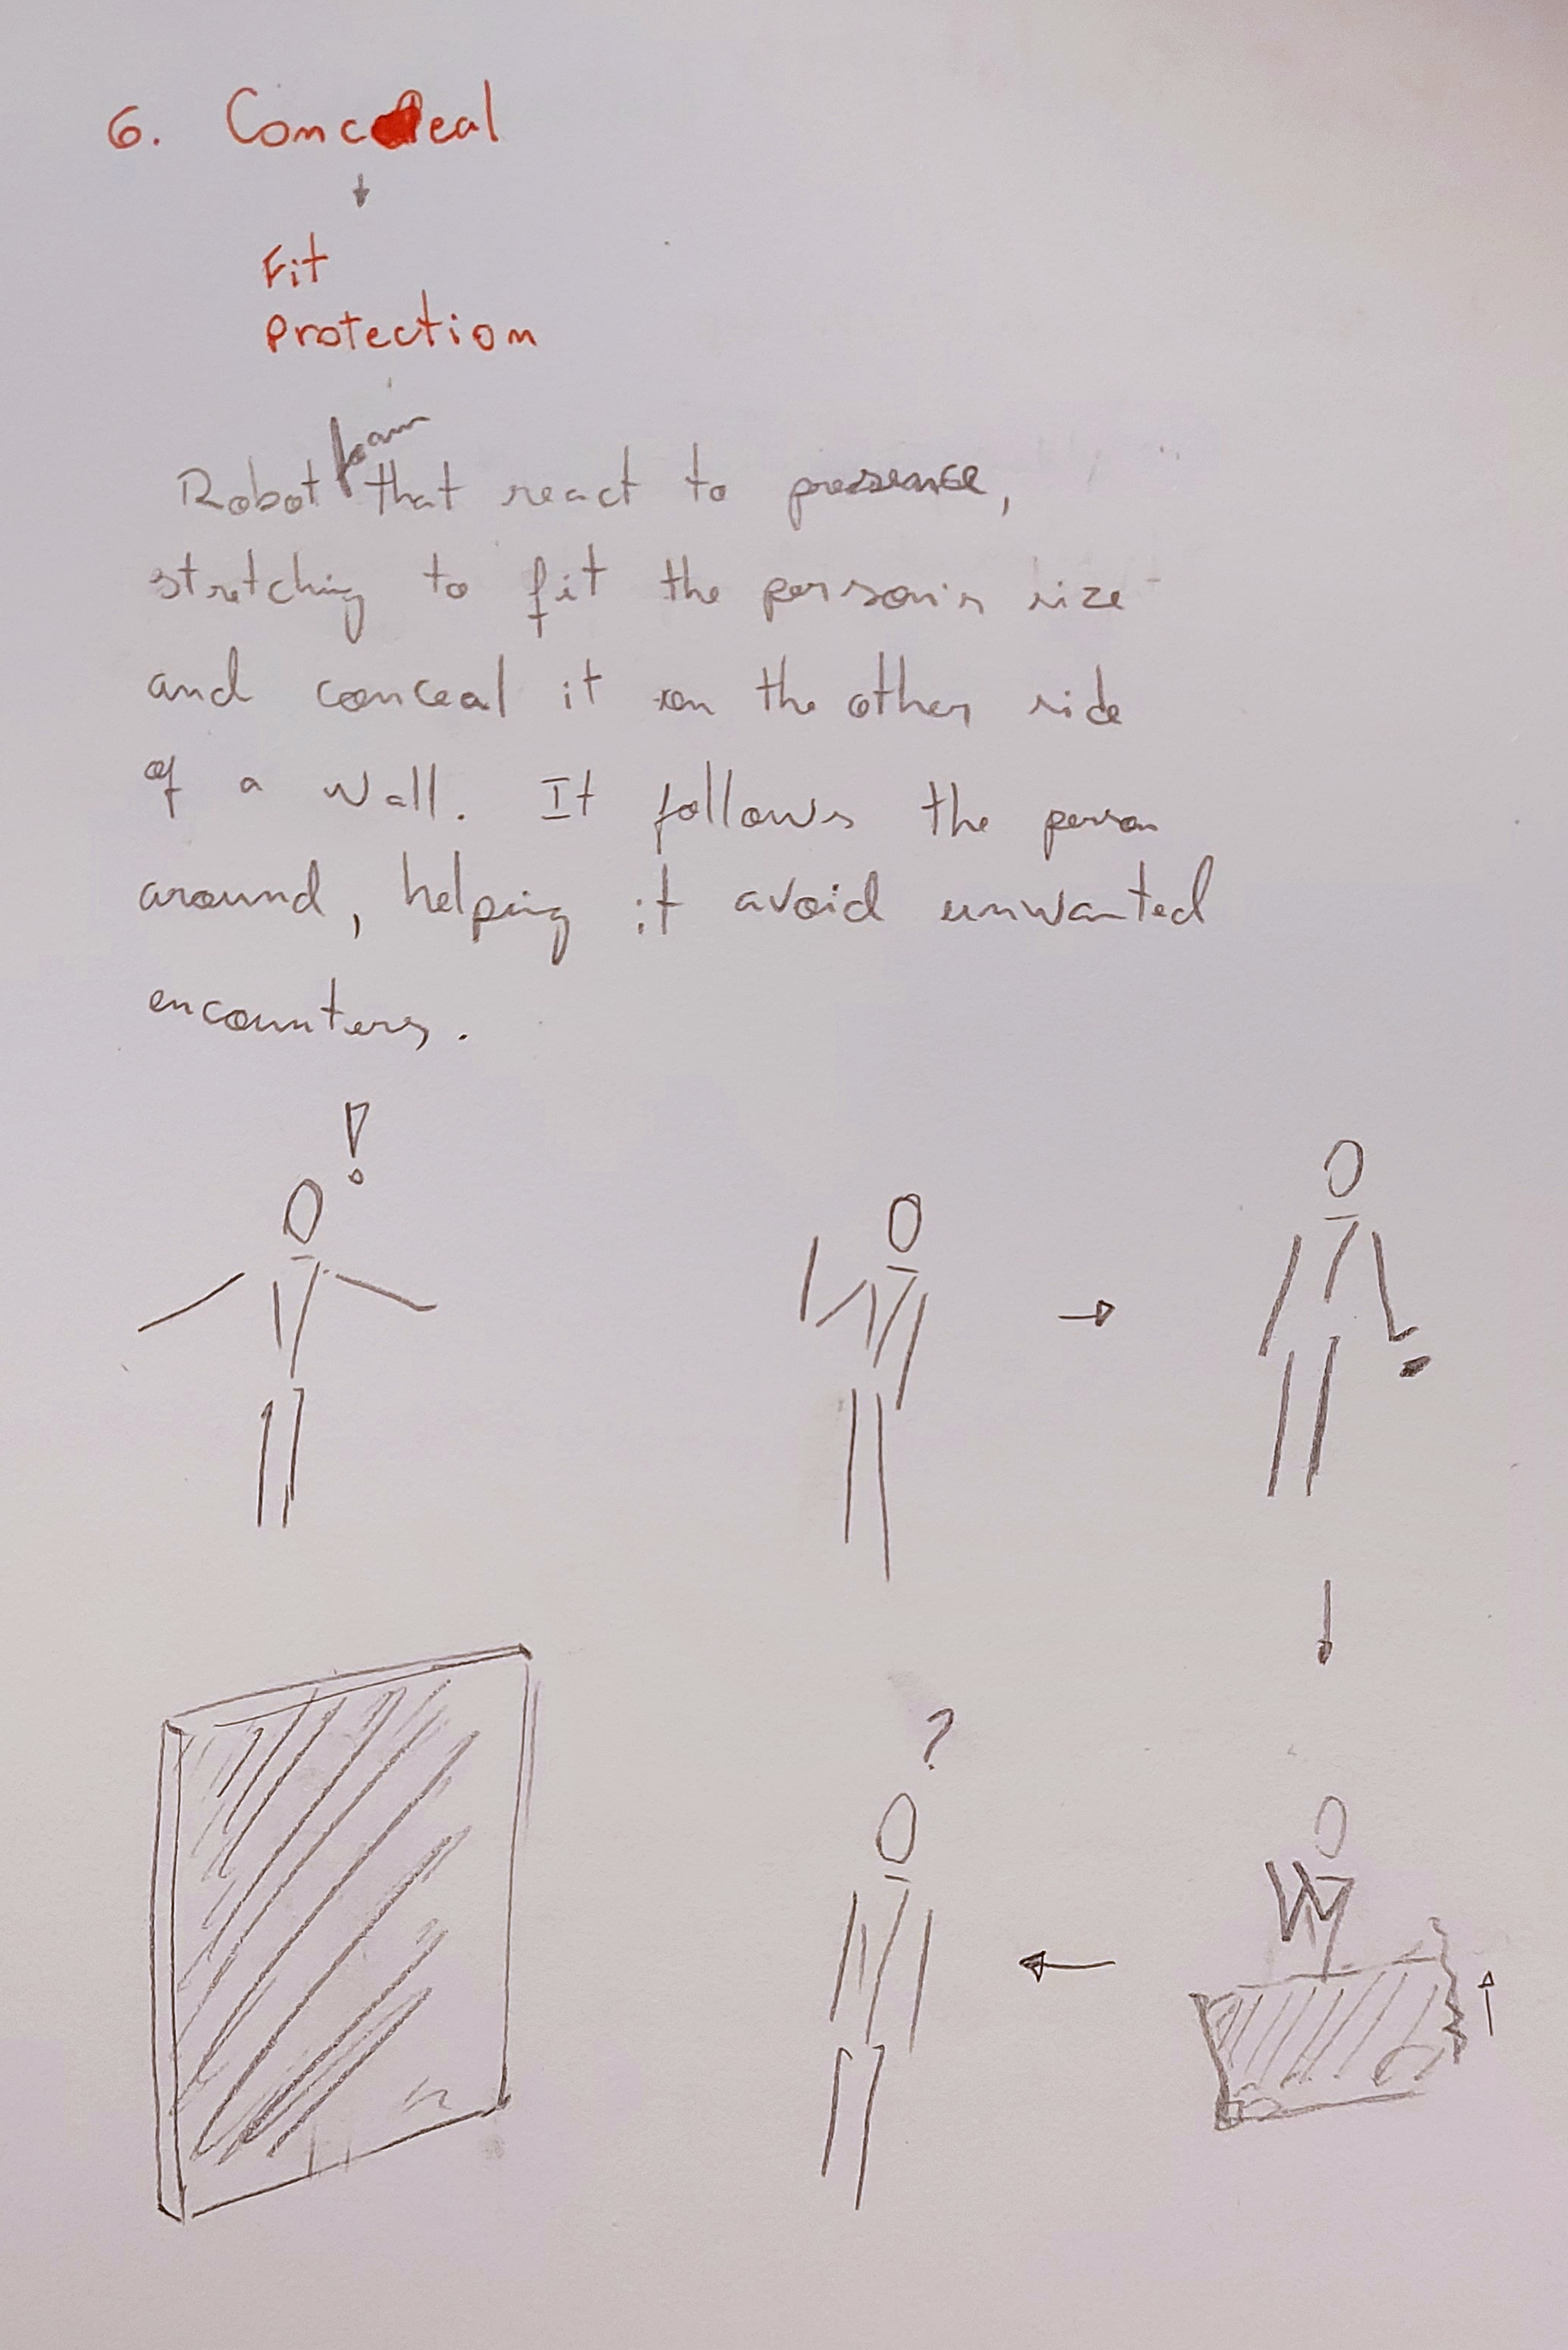 6. Conceal
Fit
Protection
Robot that react to presence,
stretching to fit the person's size
and conceal it on the other side
of a wall. It follows the person
around, helping it avoid unwanted
encounters.
!
?